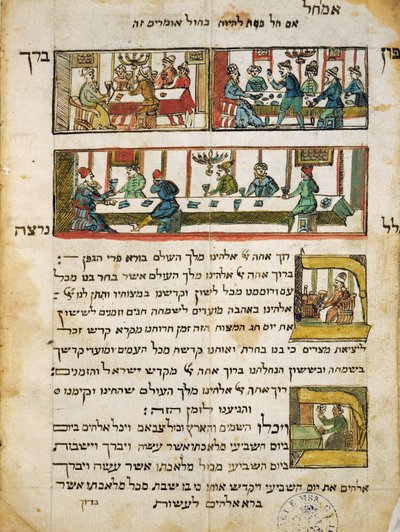 אמחל
אם חל פסח להיות בחול אומרים זה
פון ברך
לל נרצה
ברוך אתה יי אלהינו מלך העולם בורא פרי הגפן :
ברוך אתה יי אלהינו מלך העולם אשר בחר בנו מכל
עם ורוממנו מכל לשון וקדשנו במצותיו ותתן לנו יי
אלהינו באהבה מועדים לשמחה חגים וזמנים לששון
את יום חג המצות הזה זמן חרותנו מקרא קדש זכר
ליציאת מצרים כי בנו בחרת ואותנו קדשת מכל העמים ומועדי קדשך
בשמחה ובששון הנחלתנו ברוך אתה יי מקדש ישראל והזמנים:
ברוך אתה יי אלהינו מלך העולם שהחינו וקימנו
והגיענו לזמן הזה:
ויכלו השמים והארץ וכל צבאם ויכל אלהים ביום
ביום השביעי מלאכתו אשר עשה ויברך וישבות
ביום השביעי מכל מלאכתו אשר עשה ויברך
אלהים את יום השביעי ויקדש אותו כי בו שבת מכל מלאכתו אשר
ברא אלהים לעשות
ברוך